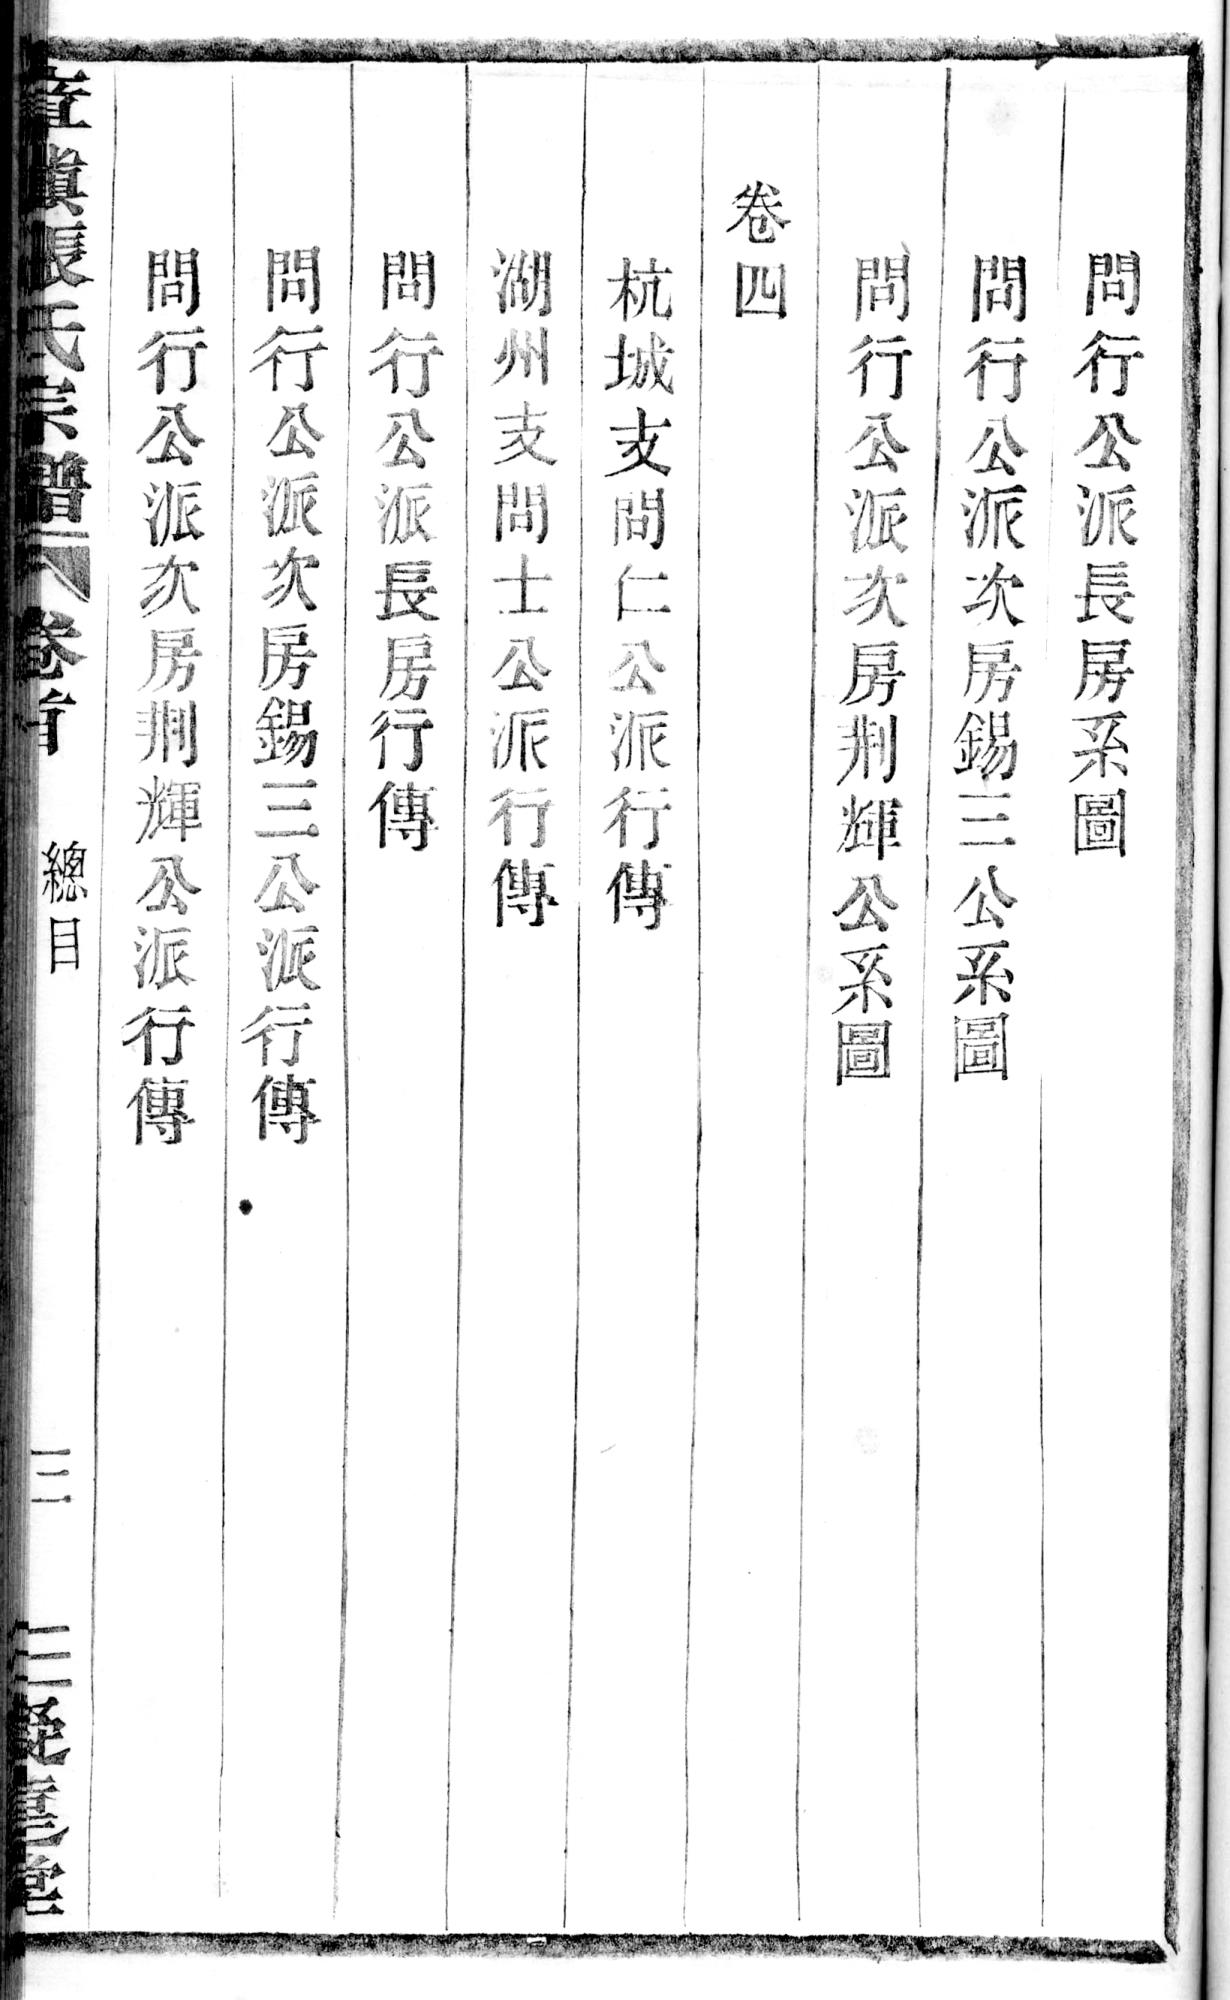 問行公派長房系圖
問行公派次房錫三公系圖
問行公派次房荆輝公系圖
卷四
杭城支問仁公派行傳
湖州支問士公派行傳
問行公派長房行傳
問行公派次房錫三公派行傳
問行公派次房荆輝公派行傳
張氏宗譜 卷首 總目 三 堂